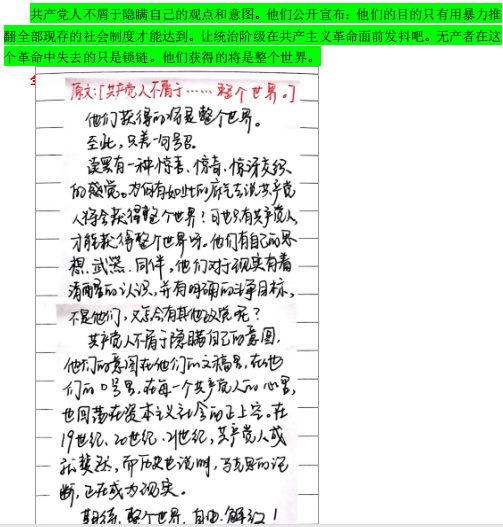 共产党人不屑于隐瞒自己的观点和意图。他们公开宣布：他们的目的只有用暴力推
翻全部现存的社会制度才能达到。让统治阶级在共产主义革命面前发抖吧。无产者在这
个革命中失去的只是锁链。他们获得的将是整个世界。
原文：[共产党人不屑于……整个世界。]
他们获得的将是整个世界。
至此，只差一句号召。
读罢有一种惊喜、惊奇、惊讶交织
的感觉。为何有如此的底气去说共产党
人将会获得整个世界？可也只有共产党人
才能获得整个世界呀。他们有自己的思
想、武器、同伴，他们对于现实有着
清醒的认识，并有明确的斗争目标，
不是他们，又怎会有其他政党呢？
共产党人不屑于隐瞒自己的意图，
他们的意图在他们的文稿里，在他
们的口号里，在每一个共产党人的心里，
也回荡在资本主义社会的正上空。在
19世纪、20世纪、21世纪，共产党人成
就斐然，而历史也说明，马克思的论
断，正在成为现实。
期待，整个世界，自由，解放！